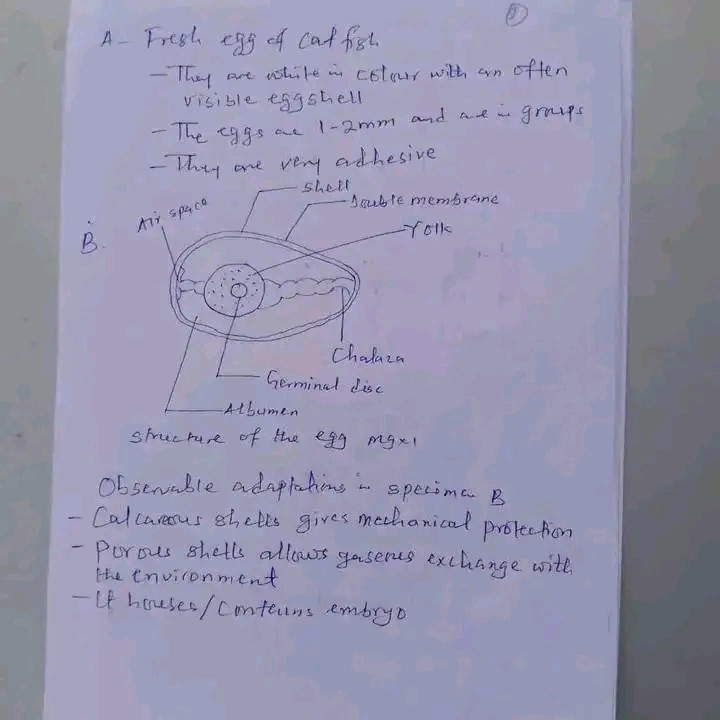 8
A - Fresh egg of cat fish
- They are white in colour with an often
visible eggshell
- The eggs are 1-2mm and are in groups
- They are very adhesive
B.
Air space
Shell
Double membrane
Yolk
Chalaza
Germinal disc
Albumen
structure of the egg mg x 1
Observable adaptations in specimen B
- Calcareous shells gives mechanical protection
- Porous shells allows gaseous exchange with
the environment
- It houses/contains embryo